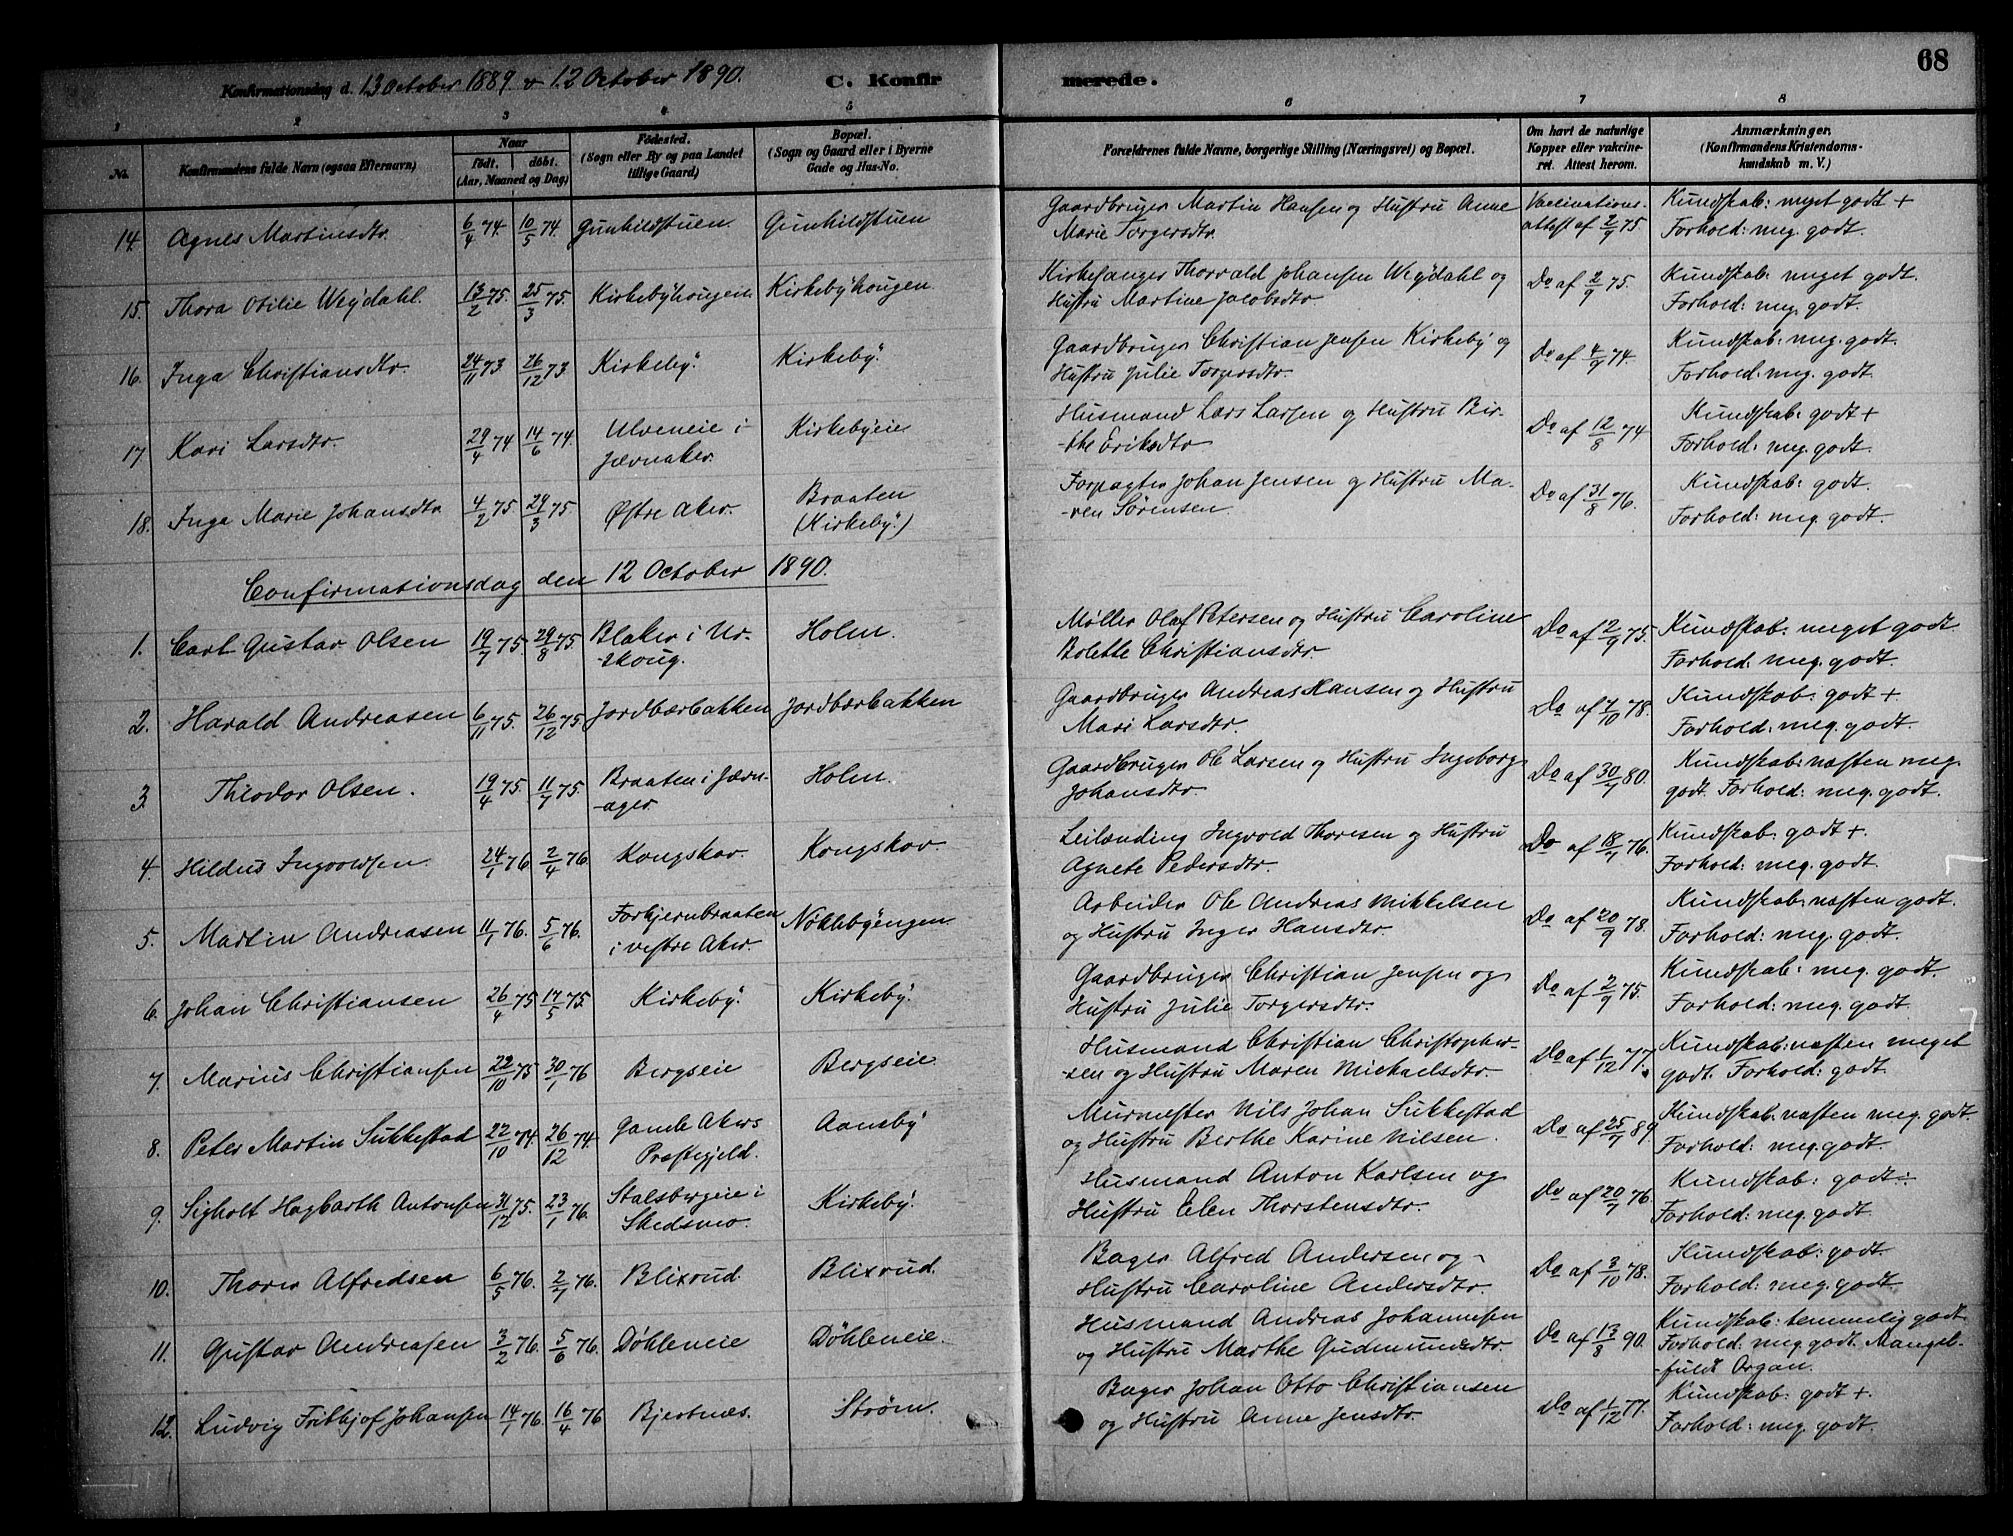 68
Konfirmationsdag d. 13 October 1889 & 12 October 1890.
C. Konfirmerede.
1 2 3 4 5 6 7 8
No.
Konfirmandens fulde Navn (ogsaa Efternavn)
Naar
født. døbt.
(Aar, Maaned og Dag)
Fødested.
(Sogn eller By og paa Landet
tillige Gaard)
Bopæl.
(Sogn og Gaard eller i Byerne
Gade og Hus-No.
Forældrenes fulde Navne, borgerlige Stilling (Næringsvei) og Bopæl.
Om havt de naturlige
Kopper eller vakcine-
ret. Attest herom.
Anmærkninger.
(Konfirmandens Kristendoms-
kundskab m. V.)
14. Agnes Martinsdtr. 6/4 74. 10/5 74. Gunhildstuen. Gunhildstuen Gaardbruger Martin Hansen og Hustru Anne Vaccinations- Kundskab: myet godt +
Marie Torgersdtr. attest af 2/9 75. Forhold: meg. godt.
15. Thora Otilie Weydahl. 13/2 75. 25/3 75. Kirkebyhougen Kirkebyhougen Kirkesanger Thorvald Johansen Weydahl og Do af 2/9 75. Kundskab: meget godt.
Hustru Martine Jacobsdtr Forhold: meg. godt.
16. Inga Christiansdtr. 24/11 73 26/12 73 Kirkeby. Kirkeby. Gaardbruger Christian Jensen Kirkeby og Do af 4/9 74. Kundskab: meg. godt.
Hustru Julie Torgersdtr. Forhold: meg. godt
17 Kari Larsdtr. 29/4 74 14/6 74. Ulveneie i Kirkebyeie Husmand Lars Larsen og Hustru Bir- Do af 12/8 74 Kundskab: godt +
Jævnaker. -the Eriksdtr Forhold: meg. godt.
18. Inga Marie Johansdtr 4/2 75 29/3 75 Østre Aker. Braaten Forpagter Johan Jensen og Hustru Ma- Do af 31/8 76. Kundskab: godt.
(Kirkeby.) -ren Sørensen. Forhold: meg. godt.
Confirmationsdag den 12 October 1890.
1. Carl Gustav Olsen 19/7 75. 29/8 75. Blaker i Ur- Holm. Møller Olaf Petersen og Hustru Caroline Do af 12/9 75. Kundskab: meget godt
-skoug. Bolette Christiansdtr. Forhold: meg. godt.
2. Harald Andreasen 6/11 75. 26/12 75 Jordbærbakken Jordbærbakken Gaardbruger Andreas Hansen og Hustru Do af 7/10 78. Kundskab: godt +
Mari Larsdtr. Forhold: meg. godt.
3. Theodor Olsen. 19/4 75. 11/7 75. Braaten i Jævn- Holm. Gaardbruger Ole Larsen og Hustru Ingeborg Do af 30/7 80. Kundskab: næsten meg.
-ager. Johansdtr. godt. Forhold: meg. godt.
4. Hildus Ingvoldsen 24/1 76 2/4 76 Kongskov. Kongskov Leilænding Ingvold Thoresen og Hustru Do af 18/7 76. Kundskab: godt +.
Agnete Pedersdtr. Forhold: meg. godt.
5. Martin Andreasen 11/1 76. 5/6 76. Nøklebyengen Arbeider Ole Andreas Mikkelsen Do af 20/9 78. Kundskab: næsten godt.
i vestre Aker. og Hustru Inger Hansdtr. Forhold: meg. godt.
6. Johan Christiansen 26/4 75 17/5 75. Kirkeby. Kirkeby. Gaardbruger Christian Jensen og Do af 2/9 75. Kundskab: meg. godt.
Hustru Julie Torgersdtr. Forhold: meg. godt.
7. Marius Christiansen 22/10 75 30/1 76 Bergseie Bergseie. Husmand Christian Christopher- Do af 1/12 77. Kundskab: næsten meget
-sen og Hustru Maren Michaelsdtr. godt. Forhold: meg. godt.
8. Peter Martin Sukkestad 22/10 74 26/12 74. Gamle Akers Aansby Murmester Nils Johan Sukkestad Do af 25/7 89. Kundskab: næsten meg. godt.
Præstegjeld. og Hustru Berthe Karine Nilsen. Forhold: meg. godt.
9. Sigholt Hagbarth Antonsen 31/12 75. 23/1 76. Stalsbergeie i Kirkeby. Husmand Anton Karlsen og Do af 20/7 76. Kundskab: godt
Skedsmo. Hustru Elen Thorstensdtr. Forhold: meg. godt.
10. Thorer Alfredsen 6/5 76. 2/7 76. Blixrud Blixrud. Bager Alfred Andersen og Do af 3/10 78. Kundskab: godt.
Hustru Caroline Andersdtr. Forhold: meg. godt.
11. Gustav Andreasen 3/2 76. 5/6 76. Døhleneie Døhleneie. Husmand Andreas Johannesen Do af 13/8 90. Kundskab: temmelig godt.
og Hustru Marthe Gudmundsdtr. Forhold: meg. godt. Mangel-
-fuldt Organ.
12. Ludvig Frithjof Johansen 14/1 76. 16/4 76 Bjertnæs. Strøm. Bager Johan Otto Christiansen Do af 1/12 77. Kundskab: godt +.
og Hustru Anne Jensdtr. Forhold: meg. godt.